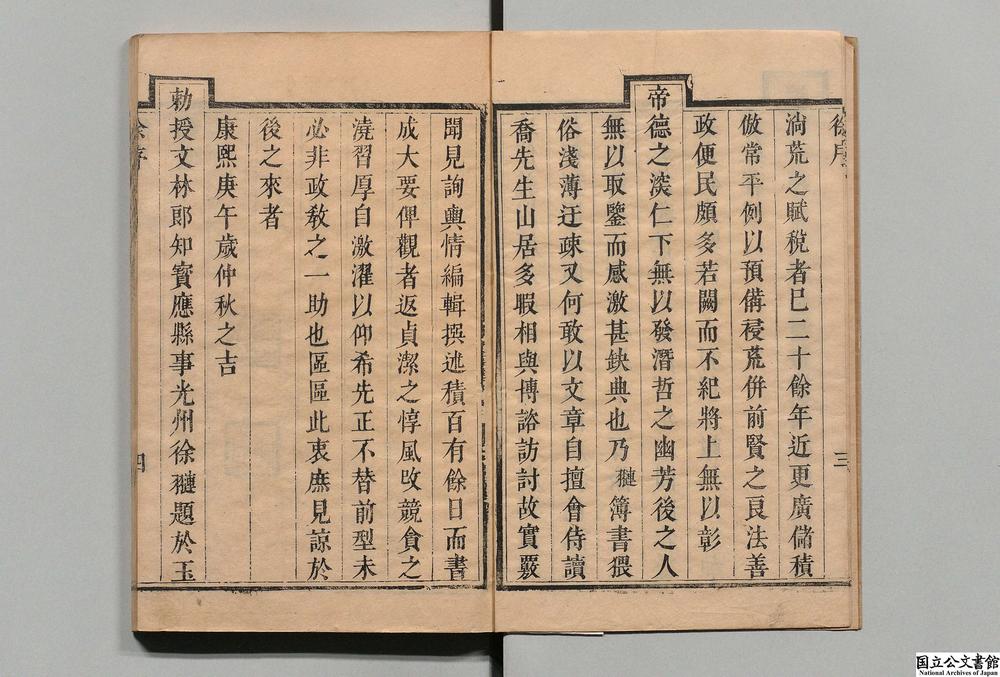 徐序
三
淌荒之賦稅者已二十餘年近更廣儲積
倣常平例以預備祲荒併前賢之良法善
政便民頗多若闕而不紀將上無以彰
帝德之深仁下無以發潛哲之幽芳後之人
無以取鑒而感激甚缺典也乃翴簿書猥
俗淺薄迂疎又何敢以文章自擅會侍讀
喬先生山居多暇相與博諮訪討故實覈
聞見詢輿情編輯撰述積百有餘日而書
成大要俾觀者返貞潔之惇風改競貪之
澆習厚自激濯以仰希先正不替前型未
必非政教之一助也區區此衷庶見諒於
後之來者
康熙庚午歲仲秋之吉
勅授文林郎知寶應縣事光州徐翴題於玉
徐序
四
国立公文書館
National Archives of Japan